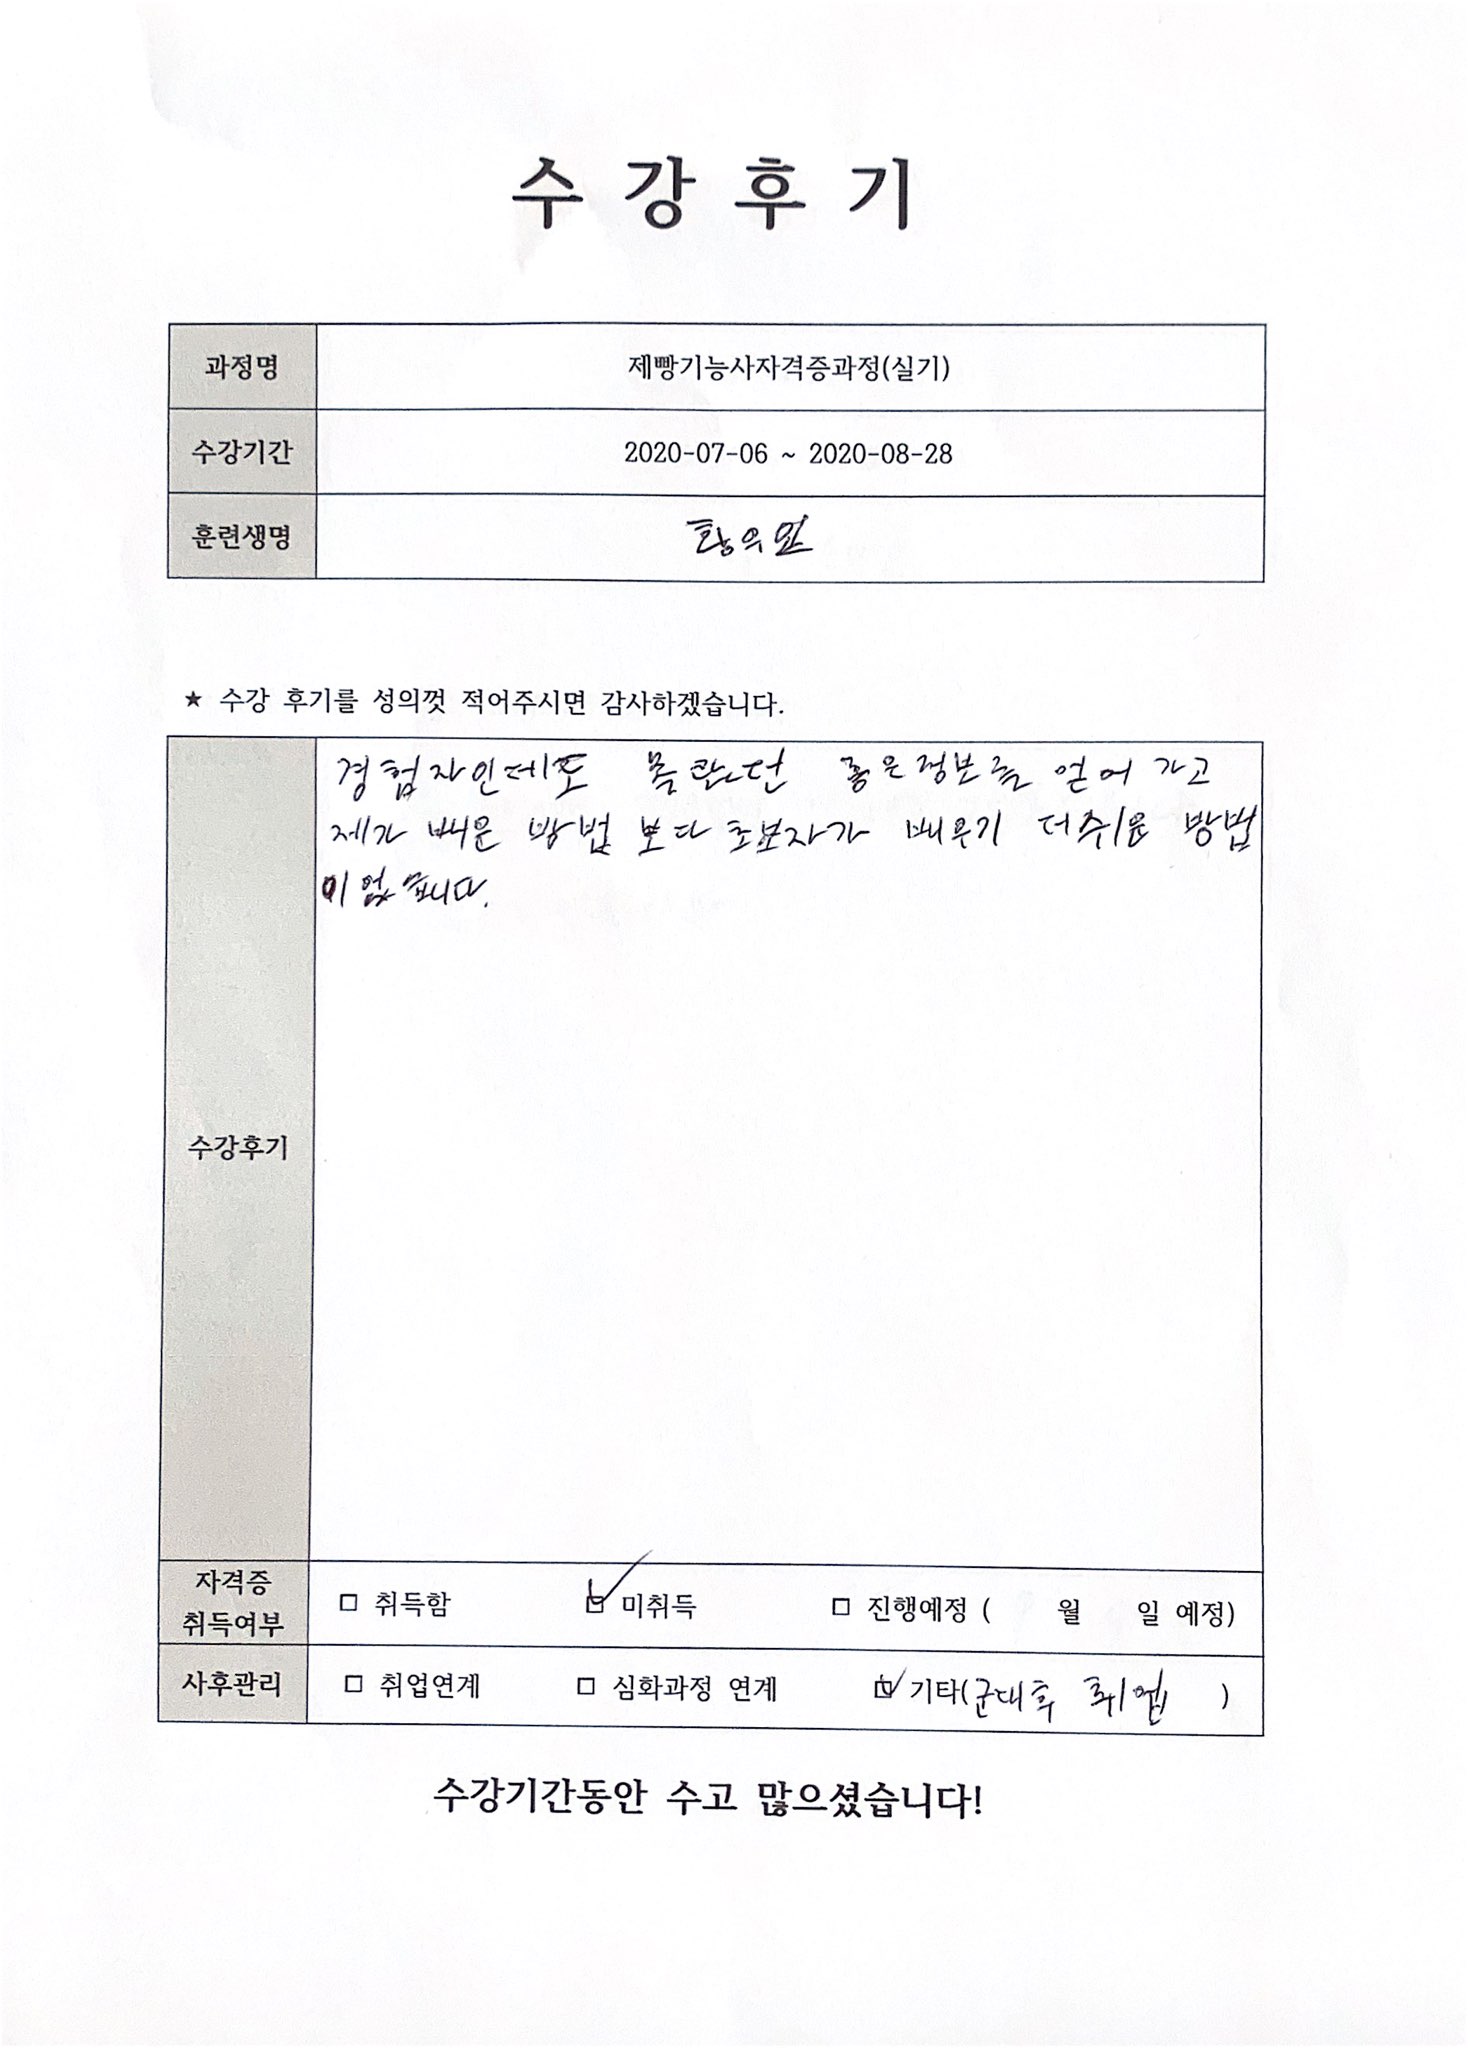 수 강 후 기
과정명 제빵기능사자격증과정(실기)
수강기간 2020-07-06 ~ 2020-08-28
훈련생명
★ 수강 후기를 성의껏 적어주시면 감사하겠습니다.
경험자인데도 몰랐던 좋은정보를 얻어 가고
제가 배운 방법 보다 초보자가 배우기 더쉬운 방법
이였습니다.
수강후기
자격증
취득여부
□ 취득함 ☑ 미취득 □ 진행예정 ( 월 일 예정)
사후관리 □ 취업연계 □ 심화과정 연계 ☑ 기타(군대후 취업 )
수강기간동안 수고 많으셨습니다!